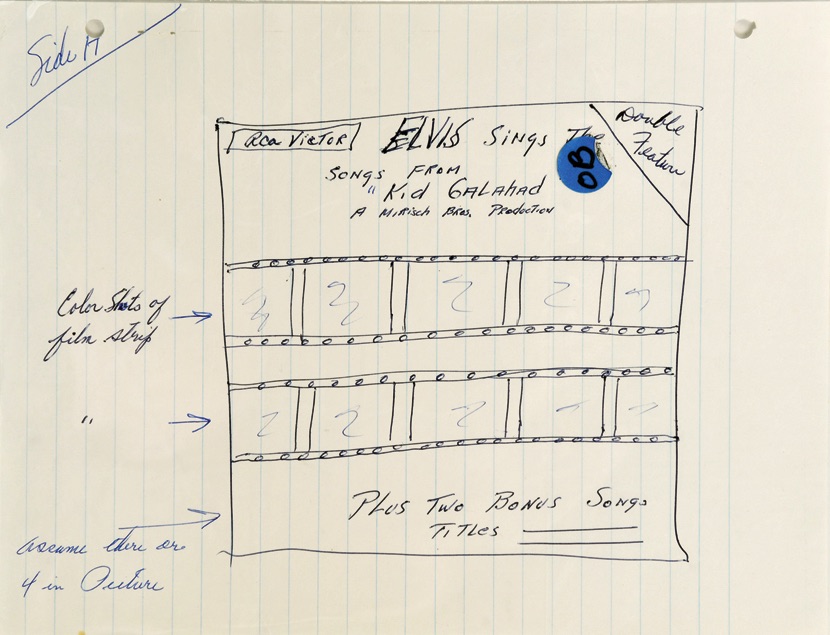 Side A
RCA VICTOR
ELVIS SINGS The
Double
Feature
SONGS FROM
" Kid GALAHAD
A MIRISCH BROS. PRODUCTION
OB
Color Shots of
film strip
"
PLUS TWO BONUS SONGS
TITLES
assume there are
4 in Picture